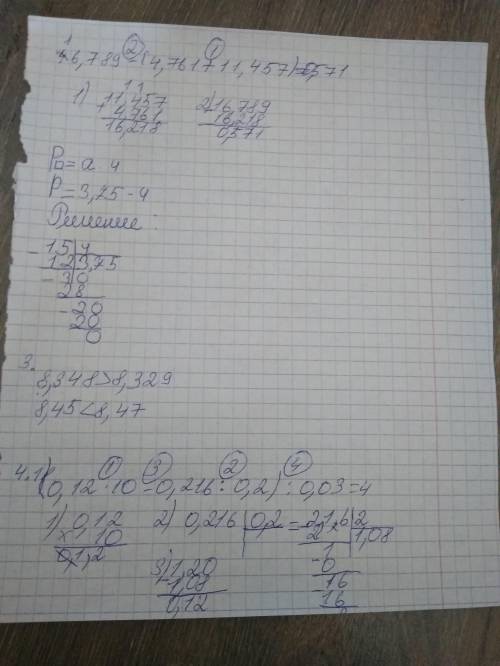 16,789 - (4,761 + 11,457) = 0,571
1) 11,457
4,761
16,218
2) 16,789
16,218
0,571
P□ = a 4
P = 3,75 - 4
Решение:
15 | 4
12 | 3,75
30
28
20
20
0
3.
8,348 > 8,329
8,45 < 8,47
4.1 (0,12 · 10 - 0,216 : 0,2) : 0,03 = 4
1) 0,12
× 10
0,1,2
2) 0,216 | 0,2 = 2,16 | 2
1,08
2
1
-0
16
16
3) 1,20
-1,08
0,12